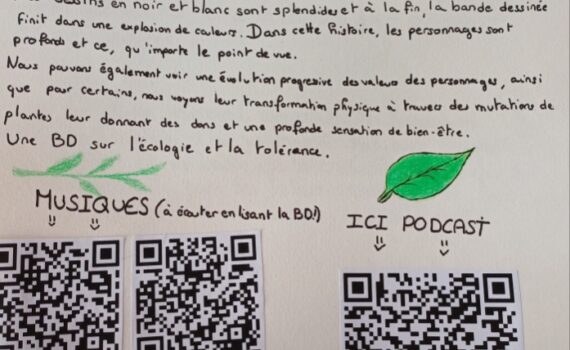 dessins en noir et blanc sont splendides et à la fin, la bande dessinée
finit dans une explosion de couleurs. Dans cette histoire, les personnages sont
profonds et ce, qu'importe le point de vue.
Nous pouvons également voir une évolution progressive des valeurs des personnages, ainsi
que pour certains, nous voyons leur transformation physique à travers des mutations de
plantes leur donnant des dons et une profonde sensation de bien-être.
Une BD sur l'écologie et la tolérance.
MUSIQUES (à écouter en lisant la BD!)
ICI PODCAST